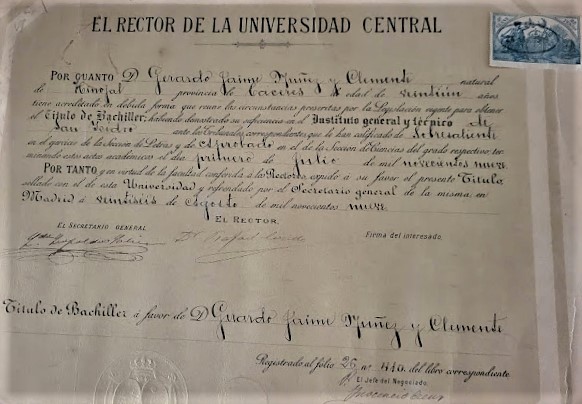 EL RECTOR DE LA UNIVERSIDAD CENTRAL
POR CUANTO D Gerardo Jaime Núñez y Clemente natural
de Hinojal provincia de Cáceres de edad de veintiún años
tiene acreditado en debida forma que reune las circunstancias prescritas por la Legislación vigente para obtener
el Título de Bachiller; habiendo demostrado su suficiencia en el Instituto general y técnico de
San Isidro ante los Tribunales correspondientes que le han calificado de Sobresaliente
en el ejercicio de la Sección de Letras y de Aprobado en el de la Sección de Ciencias del grado respectivo; ter-
minando estos actos académicos el día primero de Julio de mil novecientos nueve.
POR TANTO, y en virtud de la facultad conferida á los Rectores, expido á su favor el presente Título
sellado con el de esta Universidad y refrendado por el Secretario general de la misma en
Madrid á veintiséis de Agosto de mil novecientos nueve.
EL RECTOR,
EL SECRETARIO GENERAL
Firma del interesado,
Título de Bachiller á favor de D Gerardo Jaime Núñez y Clemente
Registrado al folio 26 nº 440 del libro correspondiente
El Jefe del Negociado